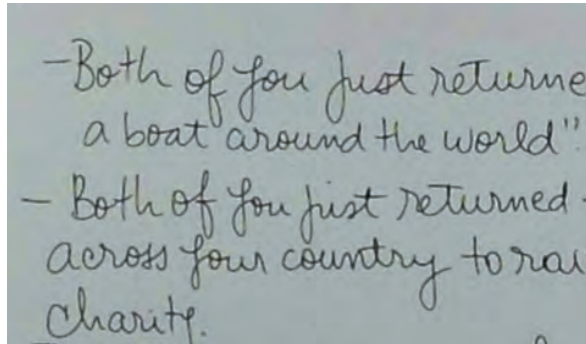 -Both of you just returne
a boat around the world"
- Both of you just returned
across your country to rai
charity.